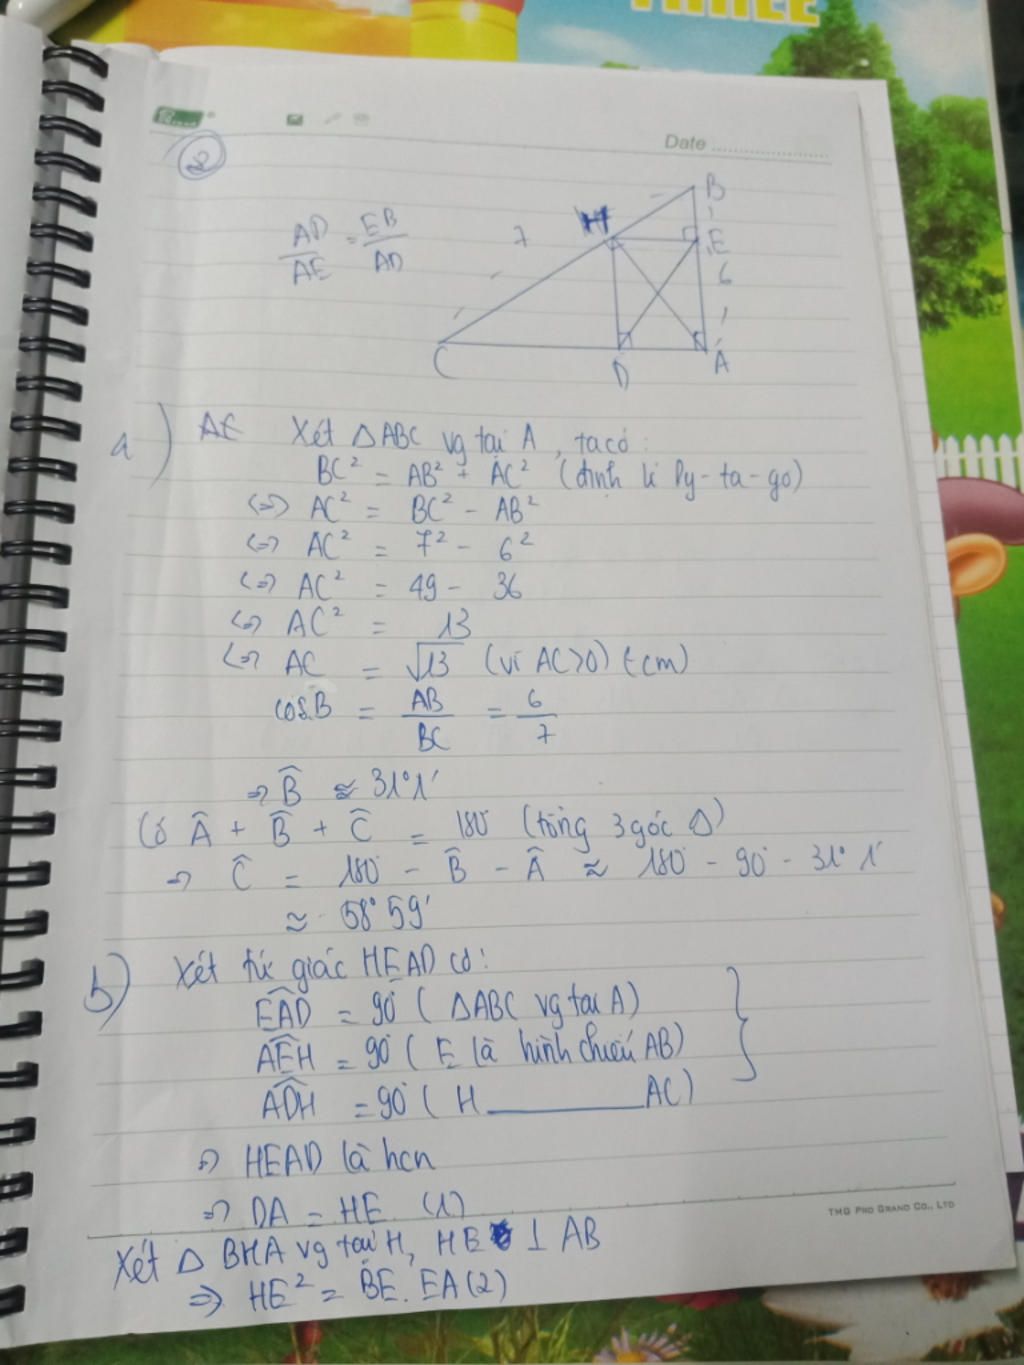 THREE
Date
2
AD/AE = EB/AD
B
H
7
E
6
C
D
A
a) AE Xét △ABC vg tại A, ta có:
BC² = AB² + AC² (định lí Py-ta-go)
<=> AC² = BC² - AB²
<=> AC² = 7² - 6²
<=> AC² = 49 - 36
<=> AC² = 13
<=> AC = √13 (vì AC>0) (cm)
cosB = AB/BC = 6/7
=> B̂ ≈ 31°1'
Có Â + B̂ + Ĉ = 180° (tổng 3 góc △)
=> Ĉ = 180° - B̂ - Â ≈ 180° - 90° - 31°1'
≈ 58°59'
b) Xét tứ giác HEAD có:
EAD = 90° (△ABC vg tại A)
AEH = 90° (E là hình chiếu AB)
ADH = 90° (H ______ AC)
=> HEAD là hcn
=> DA = HE (1)
TMG PHO GRAND CO., LTD
Xét △ BHA vg tại H, HE ⊥ AB
=> HE² = BE. EA (2)